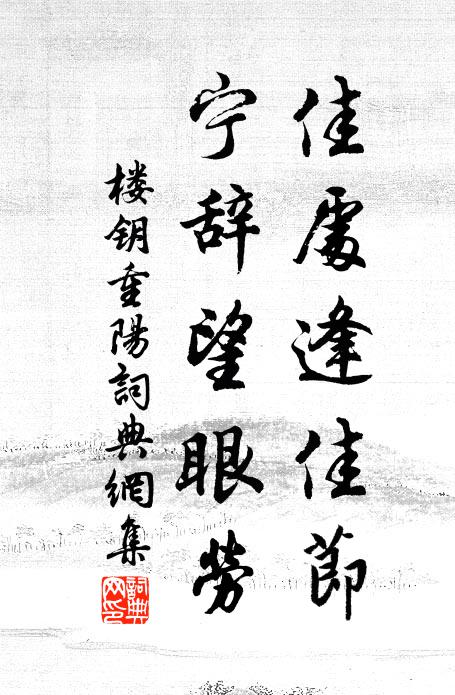 佳處逢佳節
宁辞望眼勞
楼钥重陽詞典網集
詞典网印